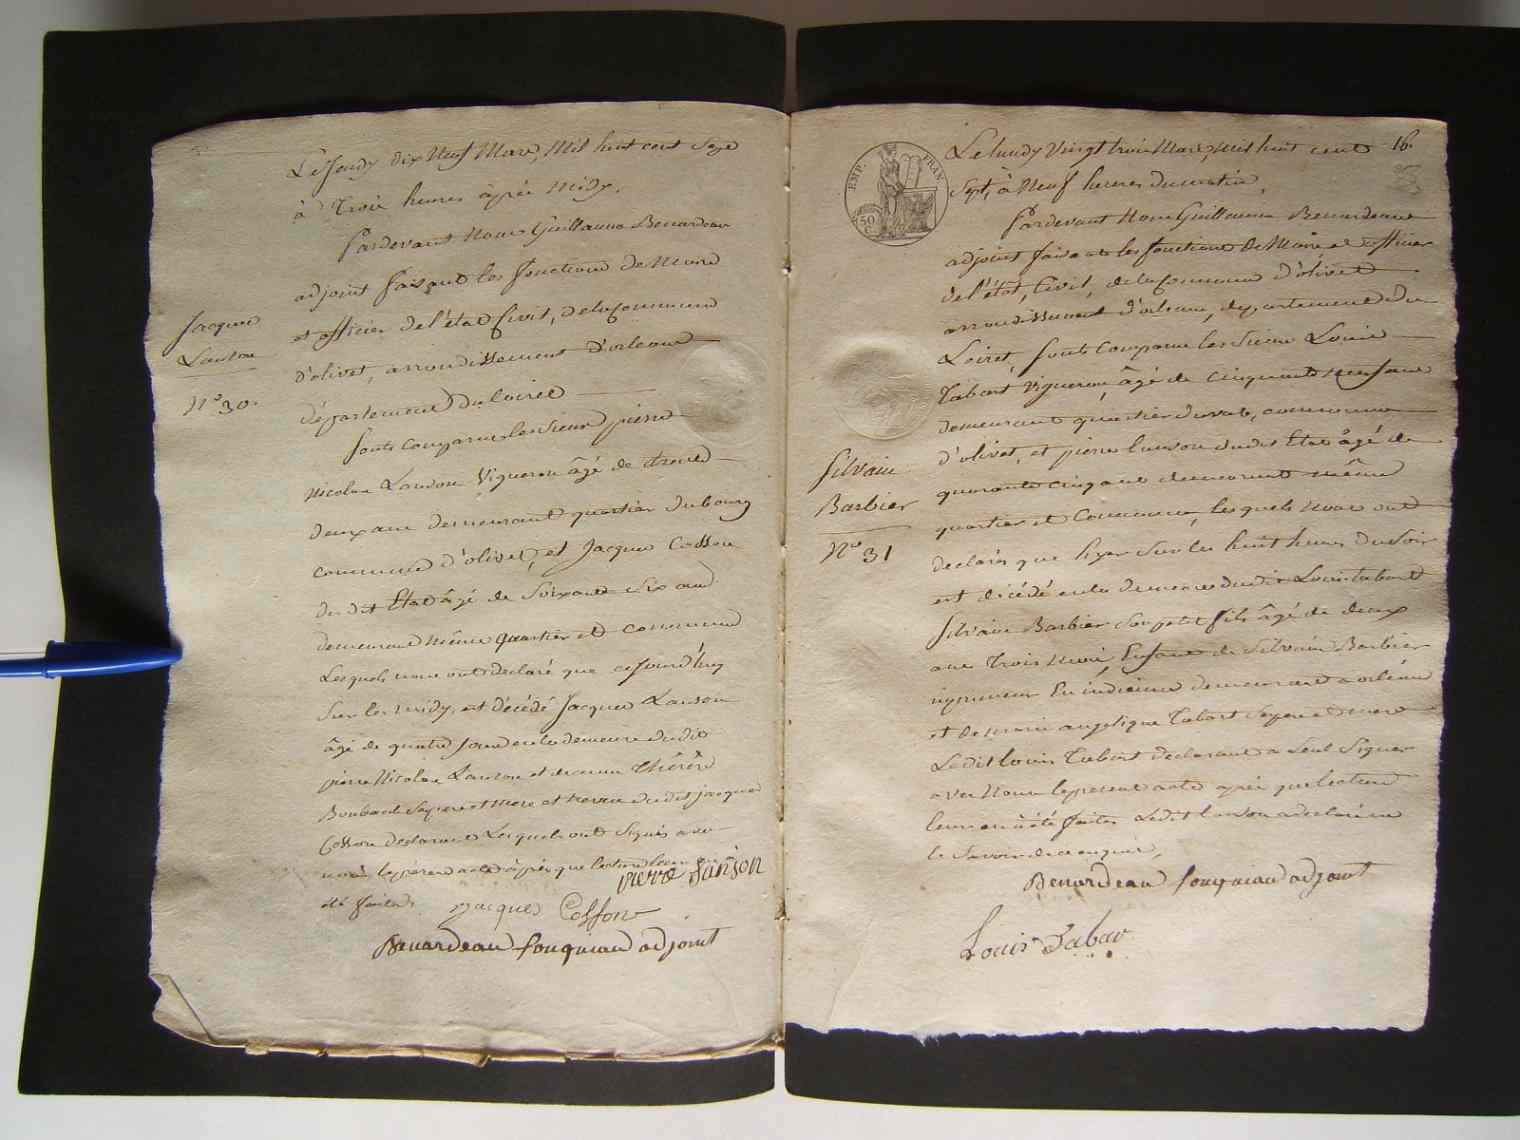 Le Jeudy dix Neuf Mars, Mil huit cent Sept
à Trois heures après Midy.
Pardevant Nous Guillaume Benardeau
adjoint faisant les fonctions de Maire
et officier de l'état Civil, de la Commune
d'olivet, arrondissement d'orleans
département du Loiret
Jacques
Lanson
N° 30.
sont comparus les sieurs pierre
Nicolas Lanson Vigneron âgé de trente
deux ans demeurant quartier du bourg
commune d'olivet, et Jacques Cosson
dudit Etat âgé de Soixante Six ans
demeurant même quartier et commune
Lesquels nous ont déclaré que cejourd'huy
Sur les midy, est décédé Jacques Lanson
âgé de quatre jours en la demeure dudit
pierre Nicolas Lanson et de Thérèse
Ses pere et mere et neveu dudit jacques
Cosson declarant Lesquels ont Signés avec
nous le présent acte après que lecture leur en a
été faite.
pierre Lanson
Jacques Cosson
Benardeau fouqueau adjoint
EMP. FRAN.
50 C.
16.
Le lundy Vingt trois Mars, Mil huit cent
Sept, à Neuf heures du matin,
Pardevant Nous Guillaume Benardeau
adjoint faisant les fonctions de Maire et officier
de l'état, Civil, de la Commune d'olivet
arrondissement d'orleans, département du
Loiret, sont Comparus les Sieurs Louis
Tabart Vigneron, âgé de cinquante neuf ans
demeurant quartier du val, commune
d'olivet, et pierre Lanson dudit Etat âgé de
quarante cinq ans demeurant même
quartier et Commune, lesquels nous ont
Silvain
Barbier
N° 31
declarés que hyer Sur les huit heures du Soir
est décédé en la demeure dudit Louis tabart
Silvain Barbier Son petit fils âgé de deux
ans Trois mois, Enfant de Silvain Barbier
imprimeur En indienne demeurant a orléans
et de marie angelique Tabart Ses pere et mere
Ledit Louis Tabart declarant a Seul Signer
avec Nous le present acte après que lecture
leur en a été faite, Ledit Lanson a declaré ne
le Savoir de ce enquis,
Benardeau fouqueau adjoint
Louis Tabar